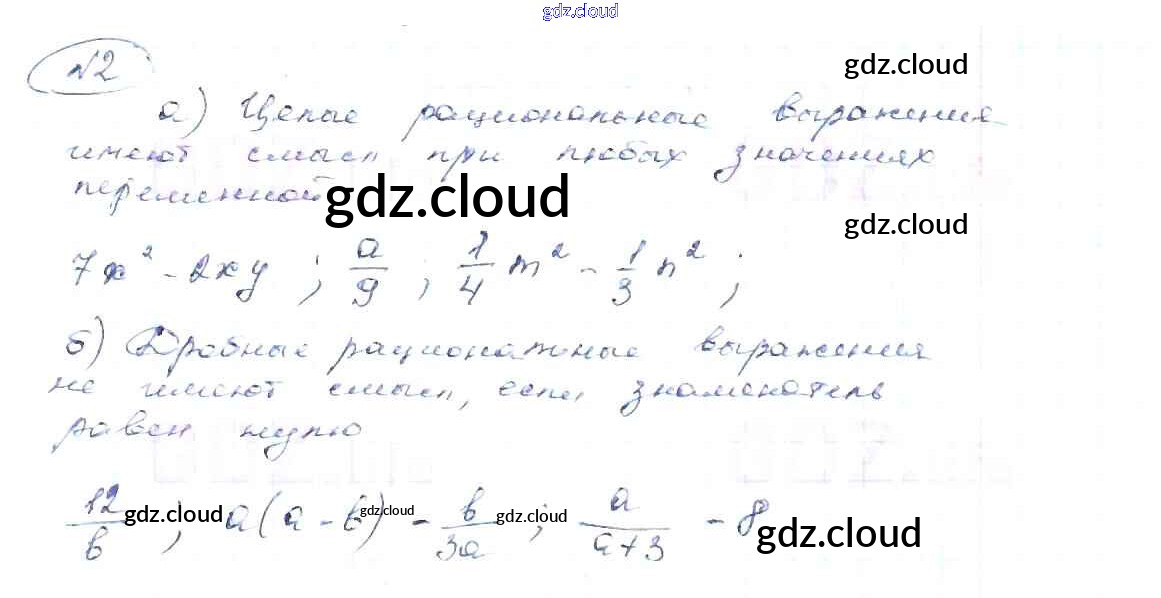 gdz.cloud
№2
gdz.cloud
а) Целые рациональные выражения
имеют смысл при любых значениях
переменной
gdz.cloud
gdz.cloud
7x² - 2xy ; a/9 ; 1/4 m² - 1/3 n² ;
б) Дробные рациональные выражения
не имеют смысл, если знаменатель
равен нулю
12/b ; a(a - b) - b/3a ; a/a+3 - 8
gdz.cloud gdz.cloud gdz.cloud gdz.cloud